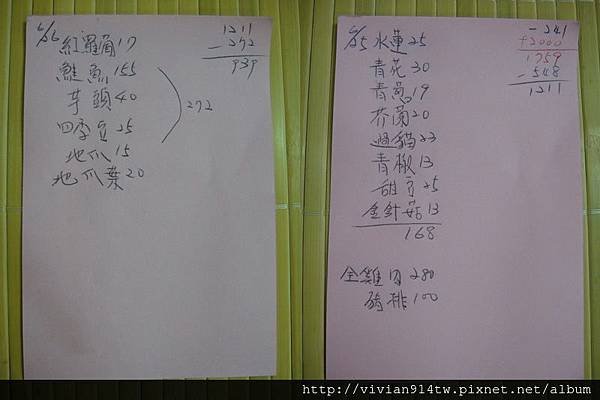 6/26 紅蘿蔔17
鮭魚155
芋頭40
四季豆25
地瓜15
地瓜葉20
272
1211
-272
939
6/25 水蓮25
青花30
青蔥19
芥蘭20
過貓23
青椒13
甜豆25
金針菇13
168
全雞肉280
豬排100
-241
+2000
1759
-548
1211
http://vivian914tw.pixnet.net/album